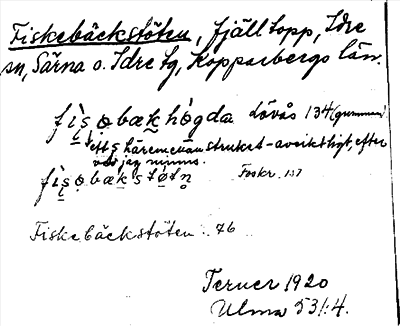 Fiskebäckstöten, fjälltopp, Idre
sn, Särna o. Idre tg, Kopparbergs län.
fìs̱o̱bæḵhó̱gda Lövås 134 (gumman)
ett s häremellan struket - avsiktligt, efter
vad jag minns.
fìs̱o̱bæḵstó̱tn̥ Foskr. 137
Fiskebäckstöten: 76
Terner 1920
Ulma 531:4.